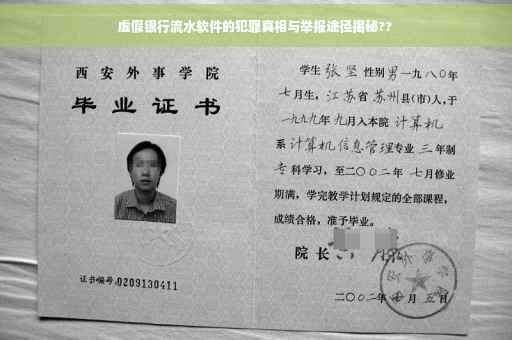 虚假银行流水软件的犯罪真相与举报途径揭秘??
西安外事学院
毕业证书
证书编号:0209130411
学生 张坚 性别 男 一九八〇年
七月生，江苏省 苏州县(市)人，于
一九九九年 九月入本院 计算机
系 计算机信息管理专业 三 年制
专科学习，至二〇〇二年 七月修业
期满，学完教学计划规定的全部课程，
成绩合格，准予毕业。
院长
二〇〇二年 月 五日